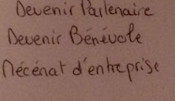 Devenir Partenaire
Devenir Bénévole
Mécénat d'entreprise